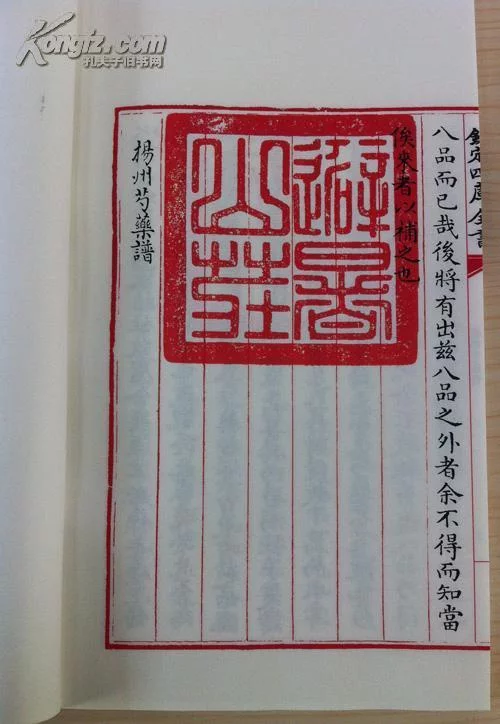 欽定四庫全書
八品而已哉後將有出茲八品之外者余不得而知當
俟來者以補之也
避暑山莊
揚州芍藥譜
Kongfz.com
孔夫子旧书网